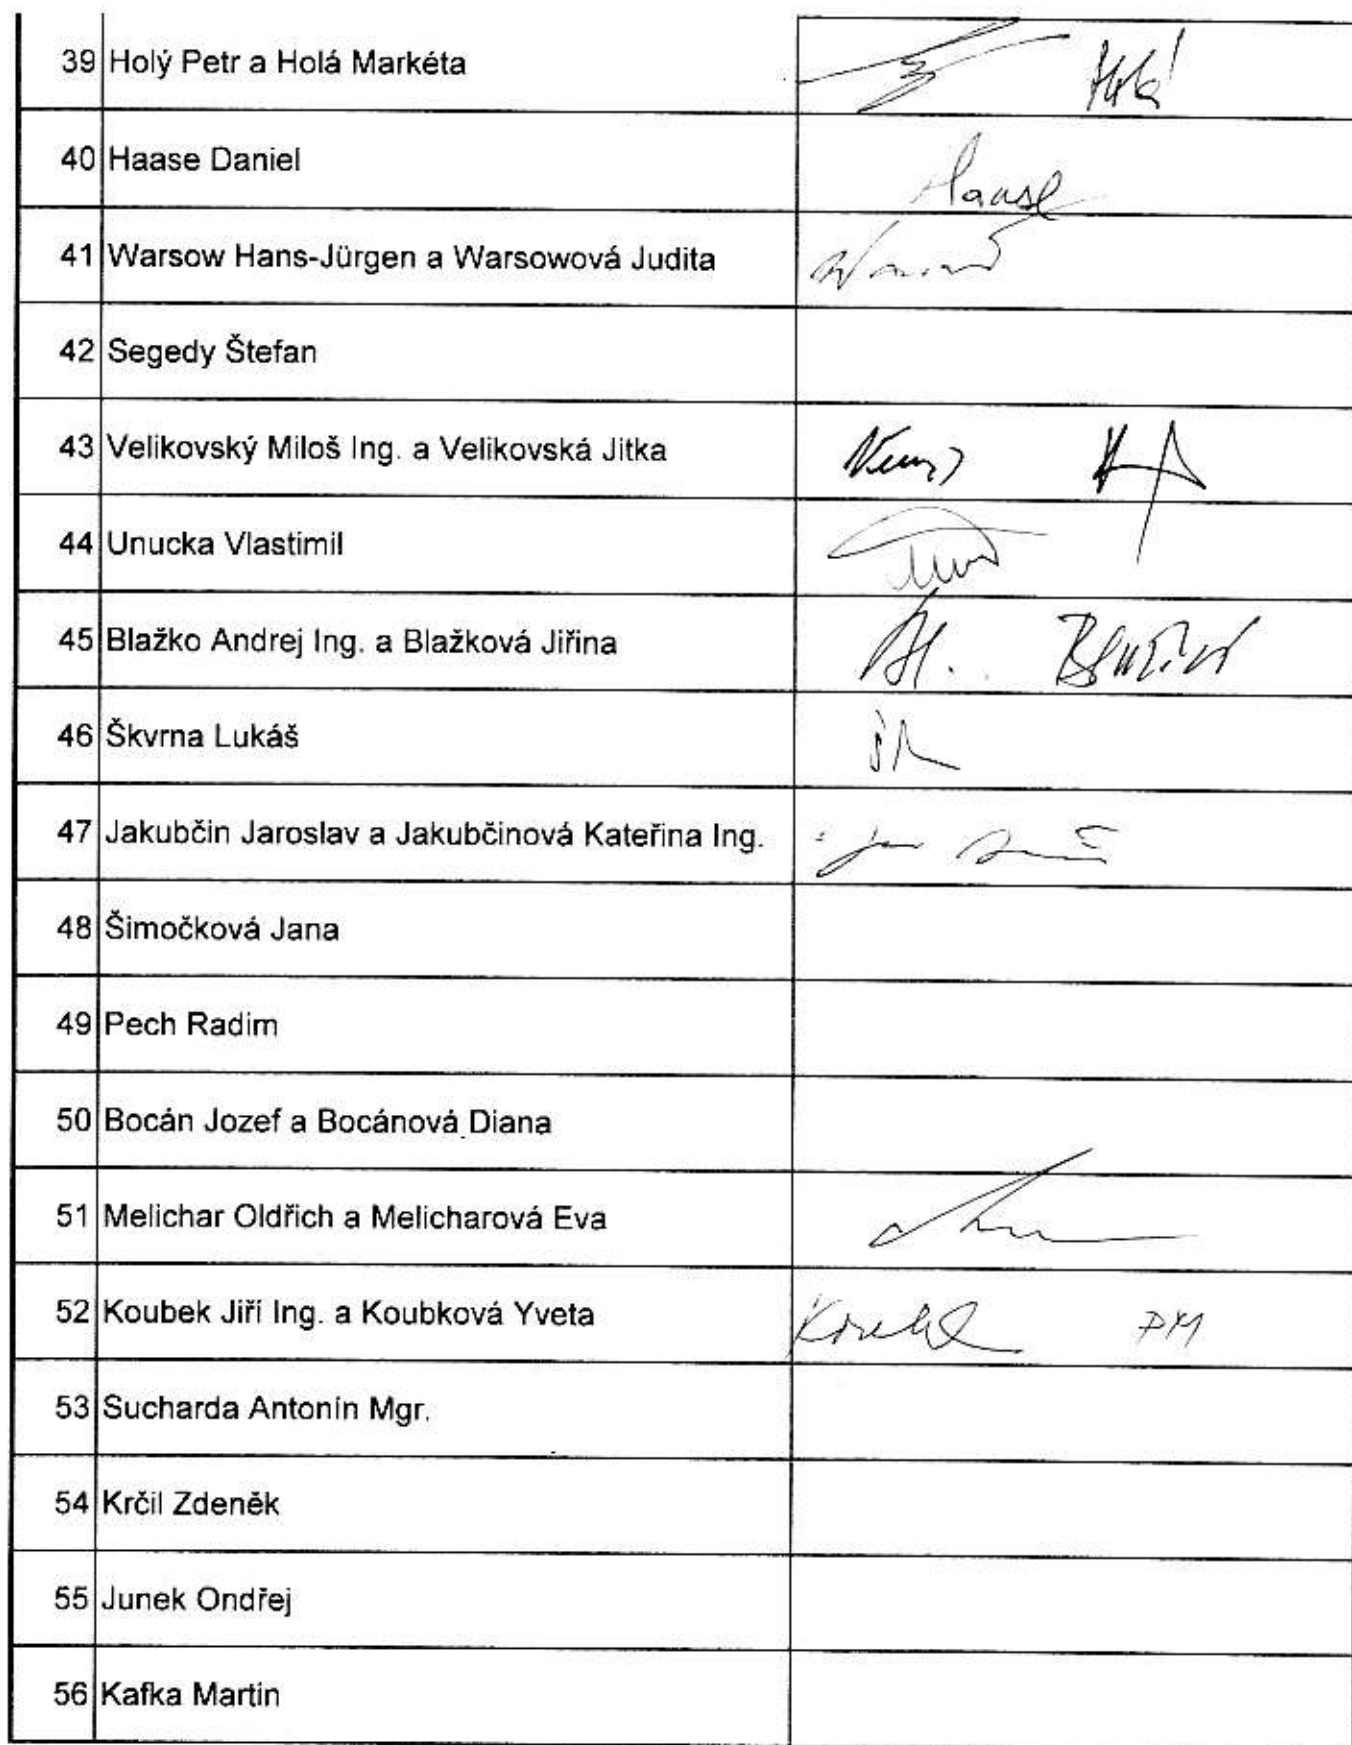 39 Holý Petr a Holá Markéta Holá
40 Haase Daniel Haase
41 Warsow Hans-Jürgen a Warsowová Judita
42 Segedy Štefan
43 Velikovský Miloš Ing. a Velikovská Jitka
44 Unucka Vlastimil
45 Blažko Andrej Ing. a Blažková Jiřina
46 Škvrna Lukáš
47 Jakubčin Jaroslav a Jakubčinová Kateřina Ing.
48 Šimočková Jana
49 Pech Radim
50 Bocán Jozef a Bocánová Diana
51 Melichar Oldřich a Melicharová Eva
52 Koubek Jiří Ing. a Koubková Yveta
53 Sucharda Antonín Mgr.
54 Krčil Zdeněk
55 Junek Ondřej
56 Kafka Martin